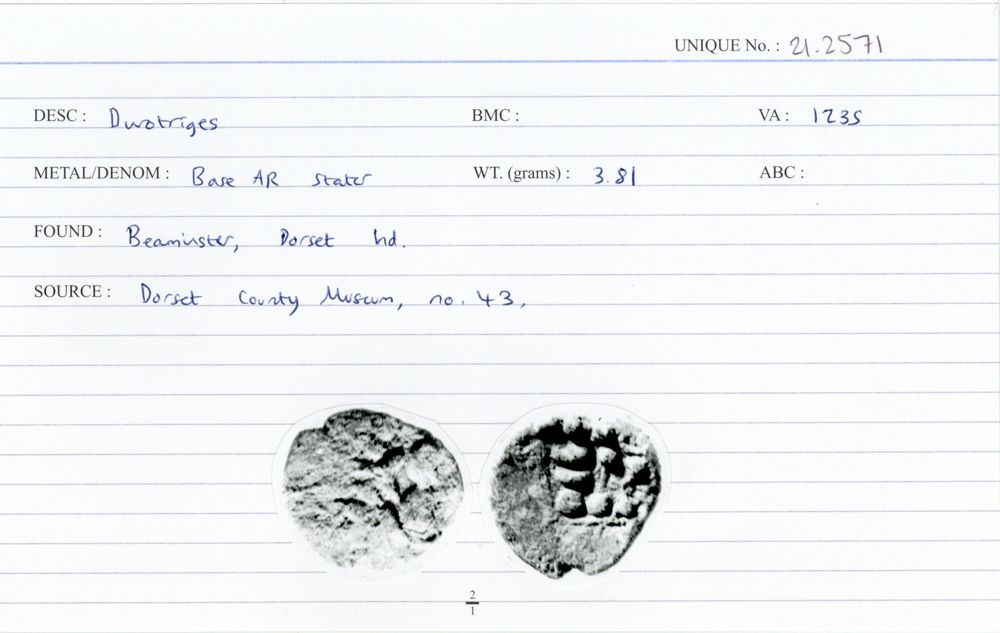 UNIQUE No. : 21.2571
DESC : Durotriges BMC : VA : 1235
METAL/DENOM : Base AR stater WT. (grams) : 3.81 ABC :
FOUND : Beaminster, Dorset hd.
SOURCE : Dorset County Museum, no. 43.
2
1